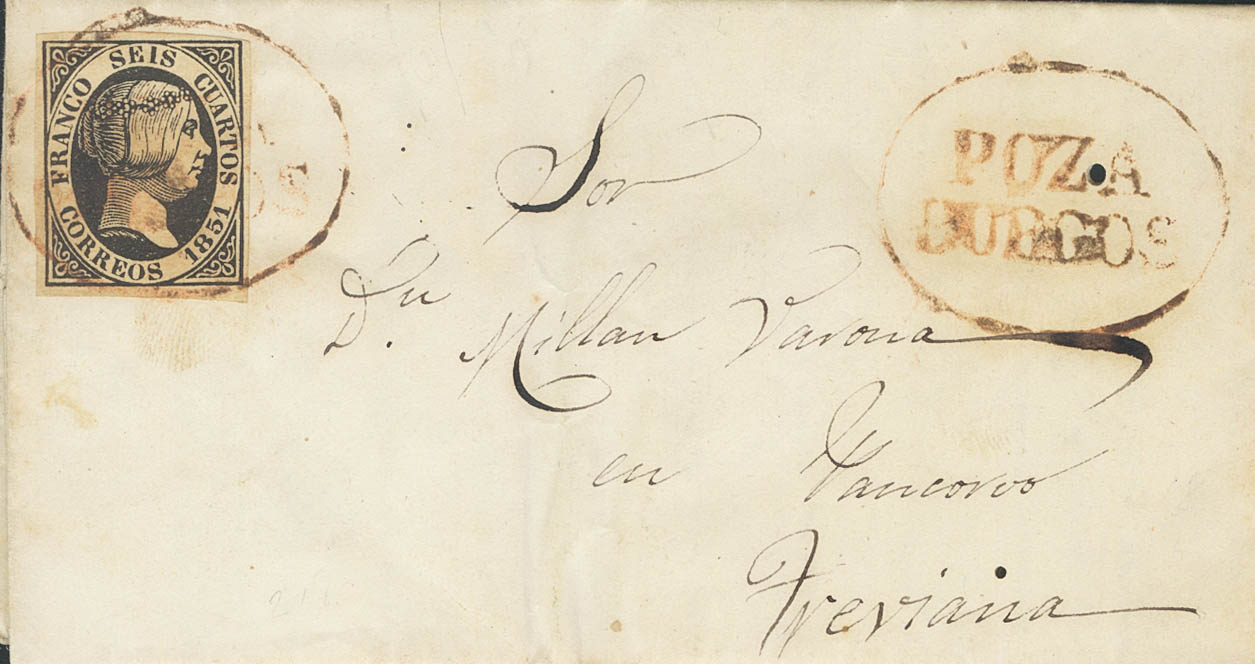 FRANCO SEIS CUARTOS
CORREOS 1851
POZA
BURGOS
Sor
Dn. Millan Varona
en Pancorvo
Treviana